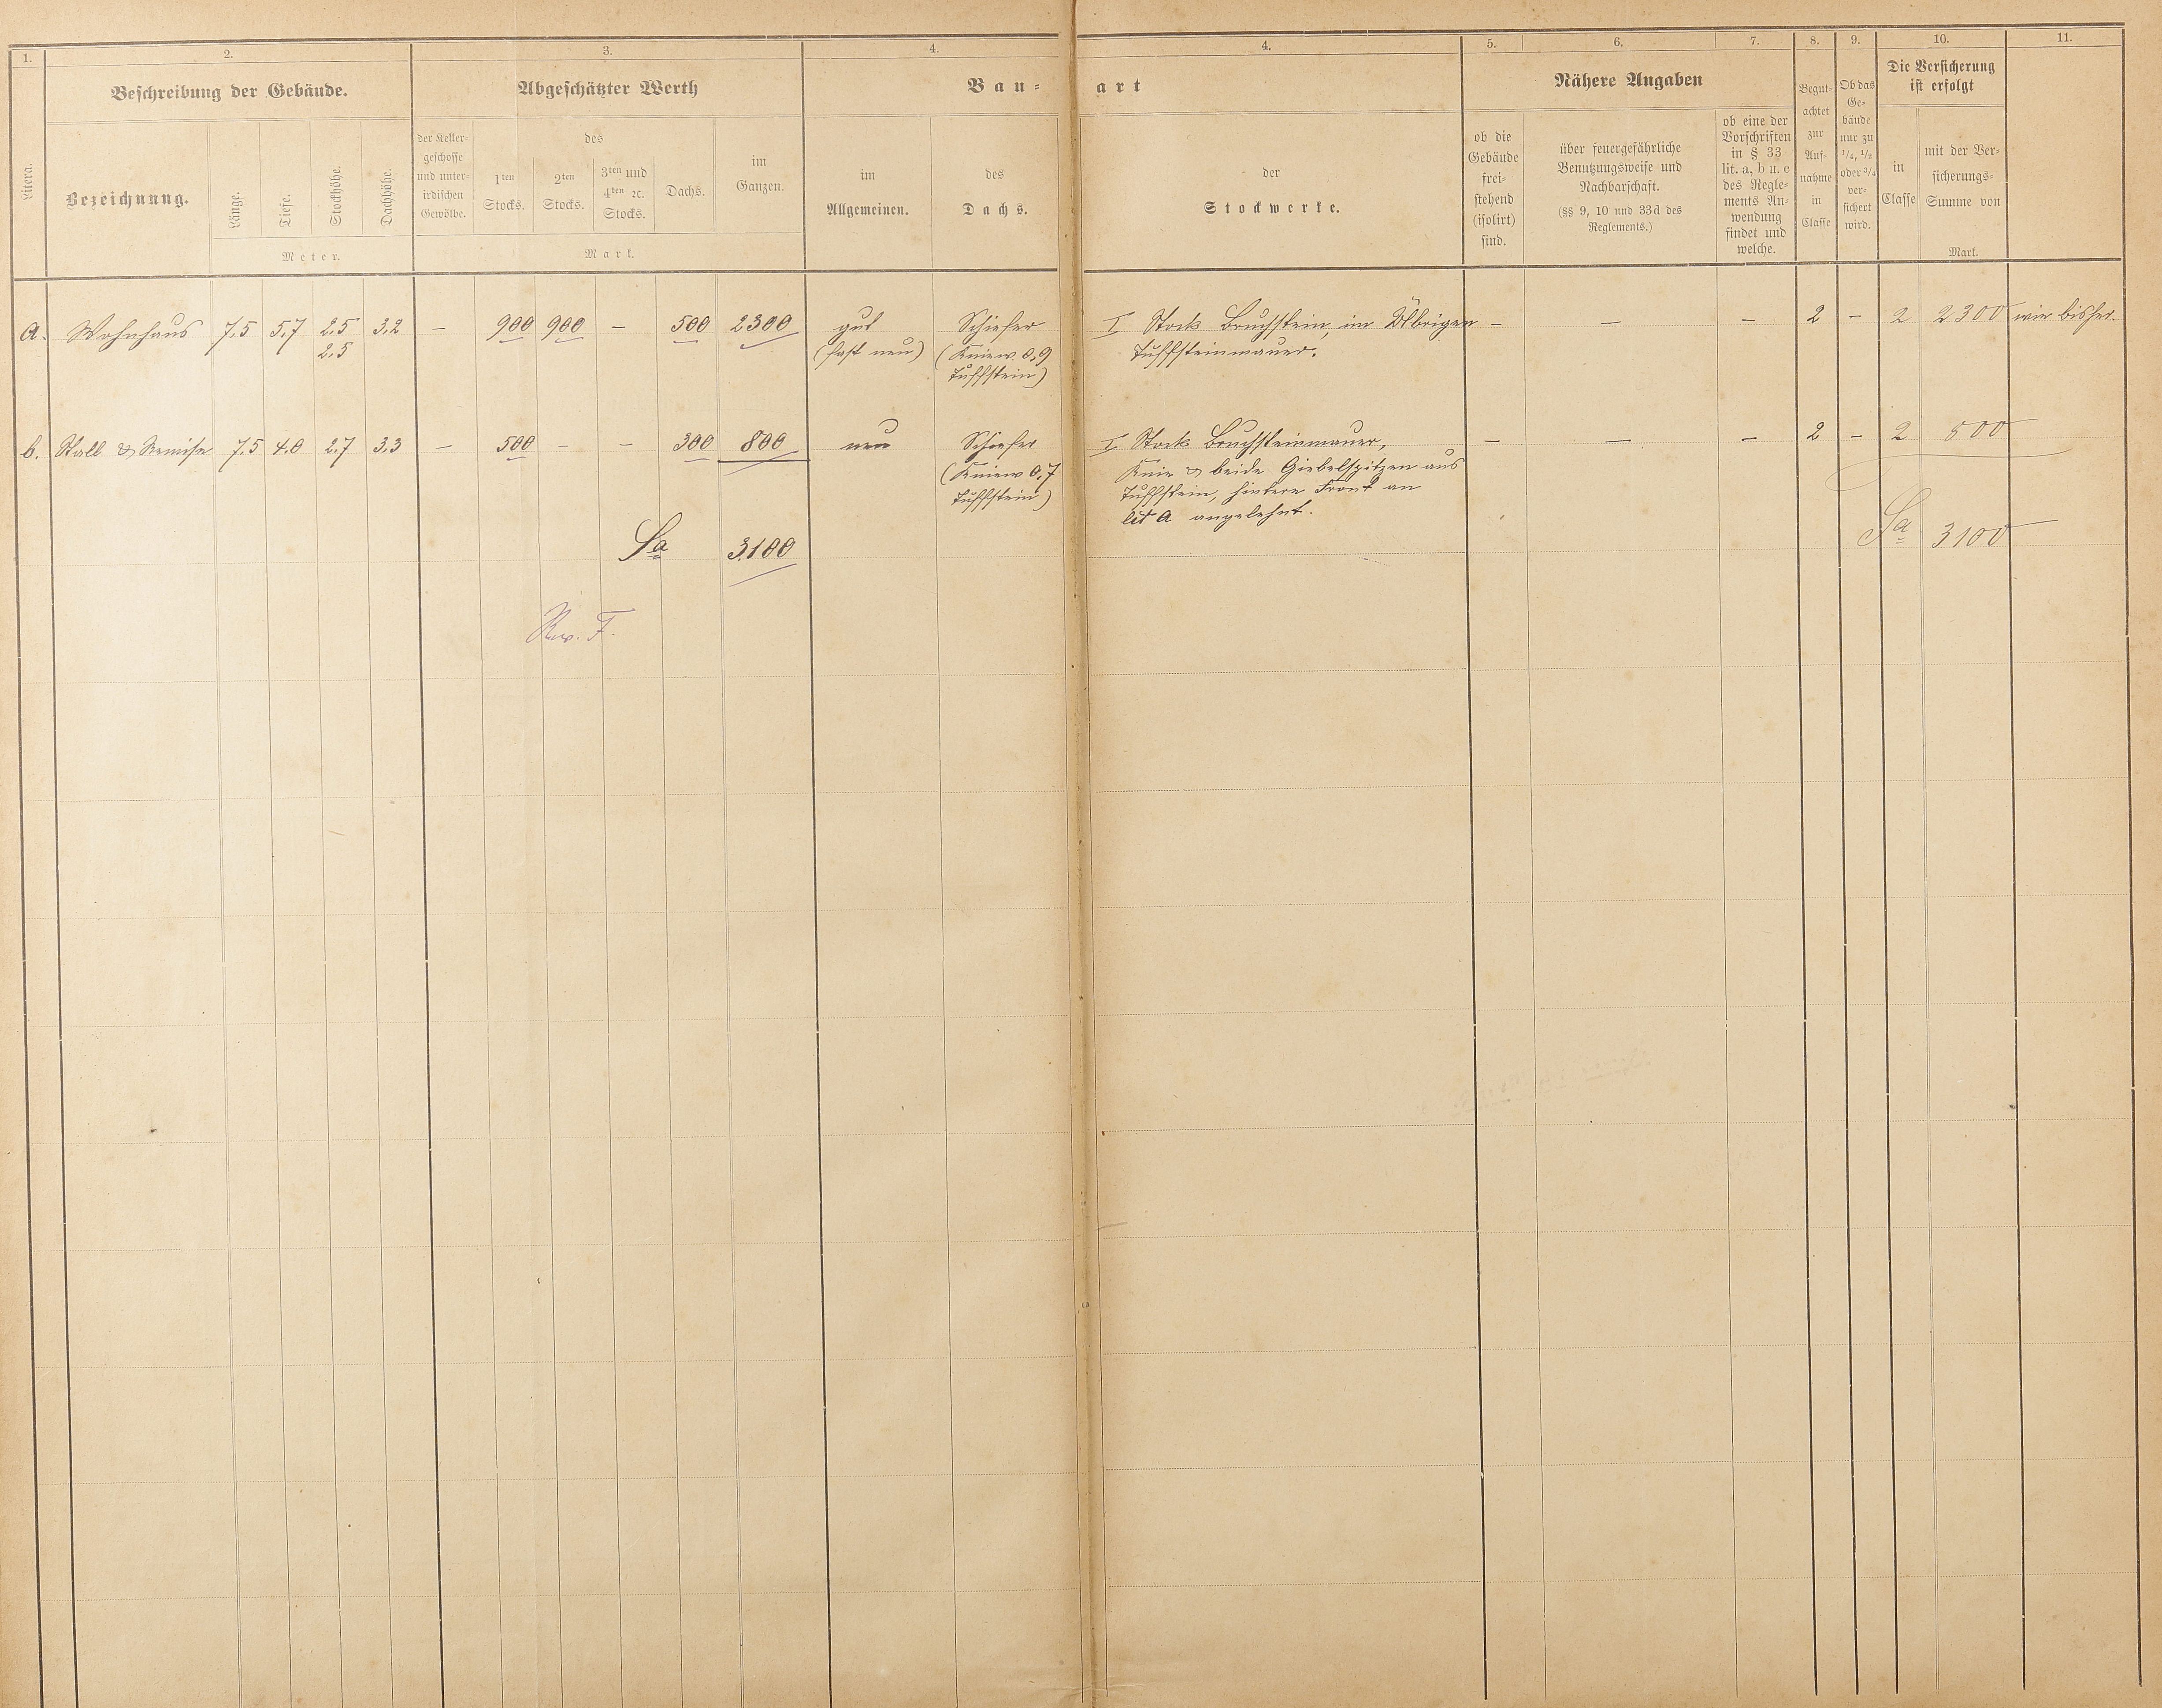 1. 2. 3. 4. 4. 5. 6. 7. 8. 9. 10. 11.
Beschreibung der Gebäude. Abgeschätzter Werth Bau- art Nähere Angaben
Litera.
Bezeichnung.
Länge.
Tiefe.
Stockhöhe.
Dachhöhe.
Meter.
der Keller-
geschosse
und unter-
irdischen
Gewölbe.
des
1ten
Stocks.
2ten
Stocks.
3ten und
4ten ec.
Stocks.
Dachs.
im
Ganzen.
Mark.
im
Allgemeinen.
des
Dachs.
der
Stockwerke.
ob die
Gebäude
frei-
stehend
(isolirt)
sind.
über feuergefährliche
Benutzungsweise und
Nachbarschaft.
(§§ 9, 10 und 33d des
Reglements.)
ob eine der
Vorschriften
in § 33
lit. a, b u. c
des Regle-
ments An-
wendung
findet und
welche.
Begut-
achtet
zur
Auf-
nahme
in
Classe
Ob das
Ge-
bäude
nur zu
1/4, 1/2
oder 3/4
ver-
sichert
wird.
Die Versicherung
ist erfolgt
in
Classe
mit der Ver-
sicherungs-
Summe von
Mark.
a. Wohnhaus 7,5 5,7 2,5 3,2 — 900 900 — 500 2300 gut Schiefer I Stock Bruchstein, im Übrigen — — — 2 — 2 2300 wie bisher.
2,5 (fast neu) (Kniew. 0,9 Tuffsteinmauer.
Tuffstein)
b. Stall & Remise 7,5 4,0 2,7 3,3 — 500 — — 300 800 neu Schiefer I Stock Bruchsteinmauer, — — — 2 — 2 800
(Kniew 0,7 Knie & beide Giebelspitzen aus
Tuffstein) Tuffstein, hintere Front an
lit a angelehnt.
Sa 3100 Sa 3100